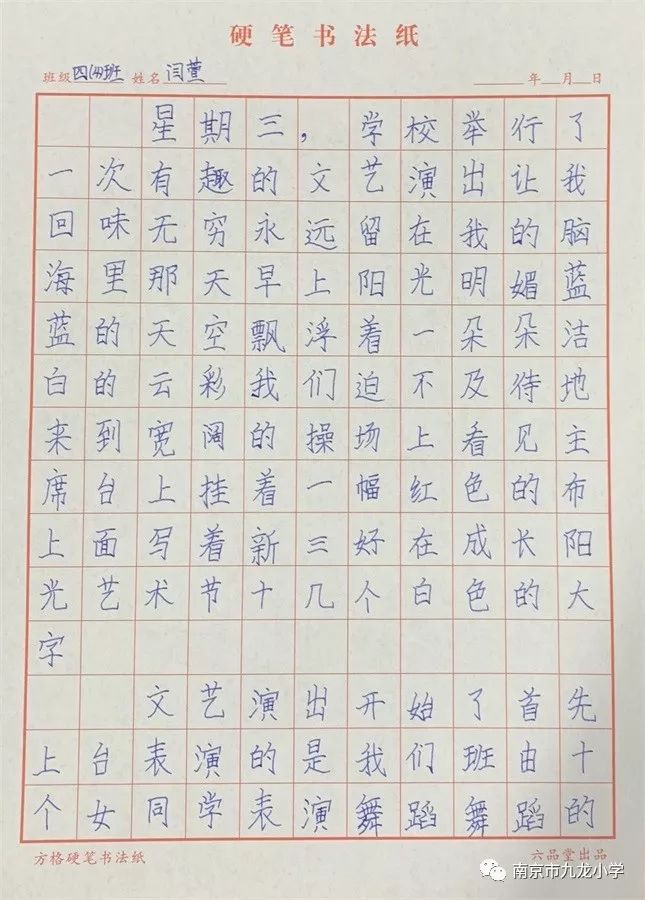 硬笔书法纸
班级 四(4)班 姓名 闫萱 年 月 日
星期三，学校举行了
一次有趣的文艺演出让我
回味无穷永远留在我的脑
海里那天早上阳光明媚蓝
蓝的天空飘浮着一朵朵洁
白的云彩我们迫不及待地
来到宽阔的操场上看见主
席台上挂着一幅红色的布
上面写着新三好在成长阳
光艺术节十几个白色的大
字
文艺演出开始了首先
上台表演的是我们班由十
个女同学表演舞蹈舞蹈的
方格硬笔书法纸 六品堂出品
南京市九龙小学